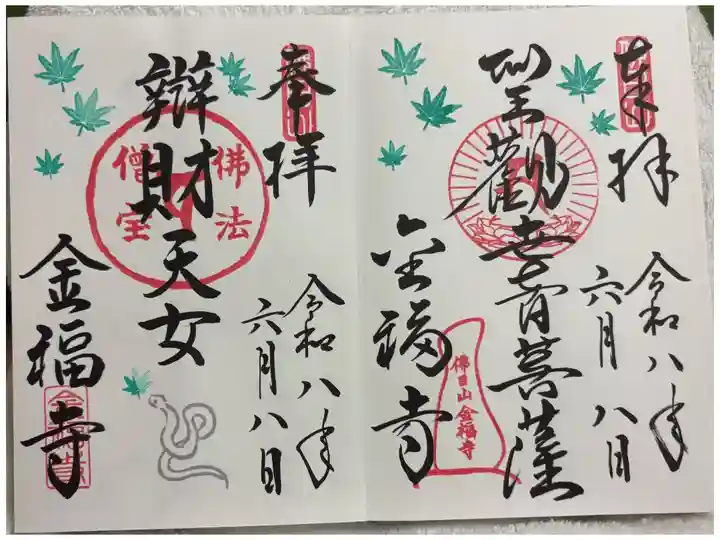 奉拝
聖観世音菩薩
令和八年
六月八日
金福寺
佛日山金福寺
奉拝
辯財天女
佛法僧宝
令和八年
六月八日
金福寺